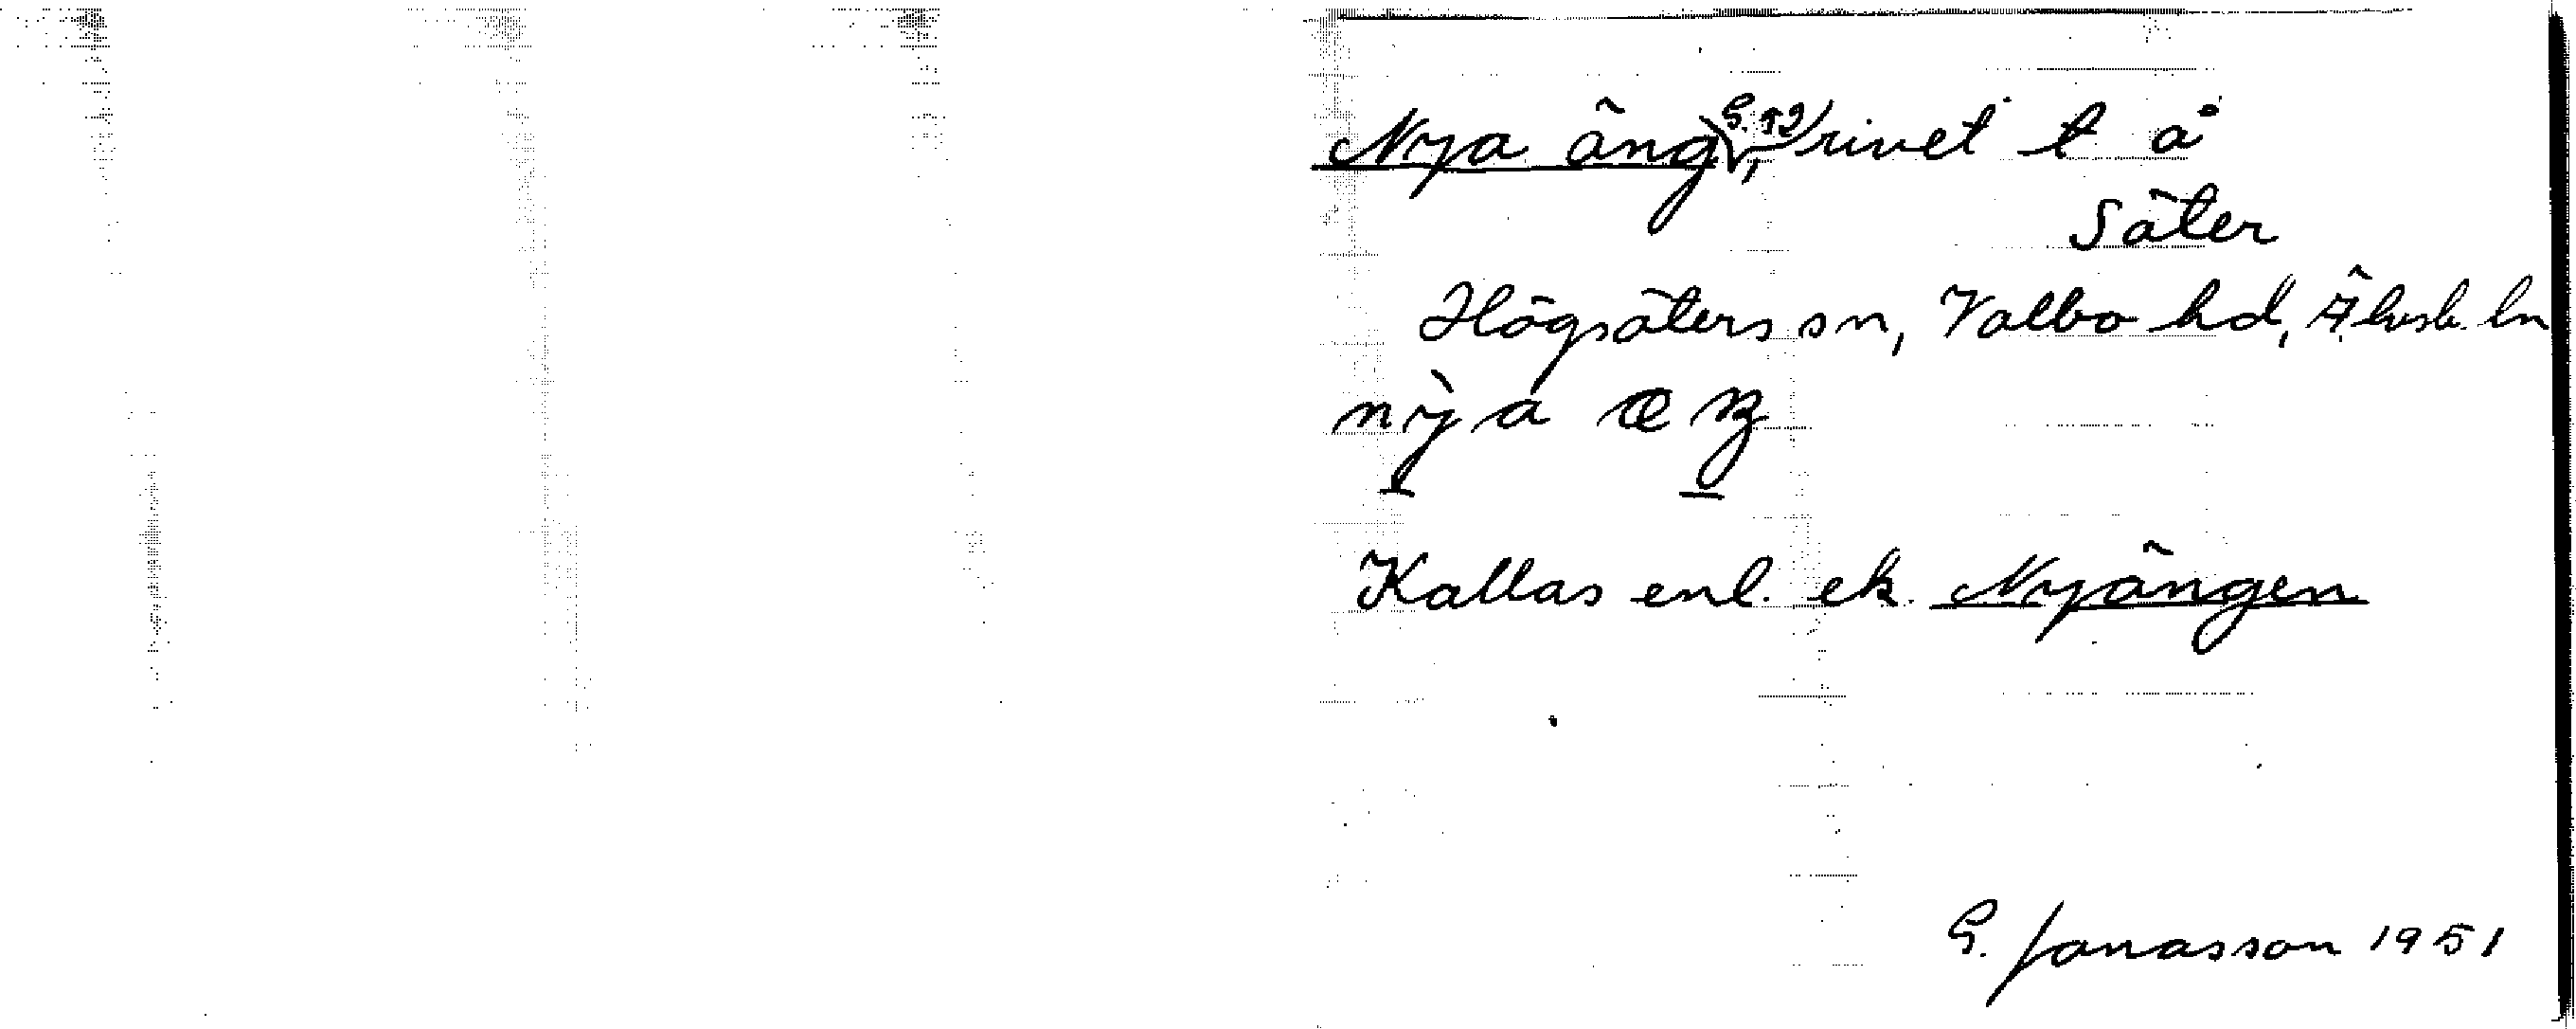 Nya äng, rivet t å
Säter
Högsäters sn, Valbo hd, Älvsb. ln
nỳa æŋ
Kallas enl. ek. Nyängen
G. Jonasson 1951